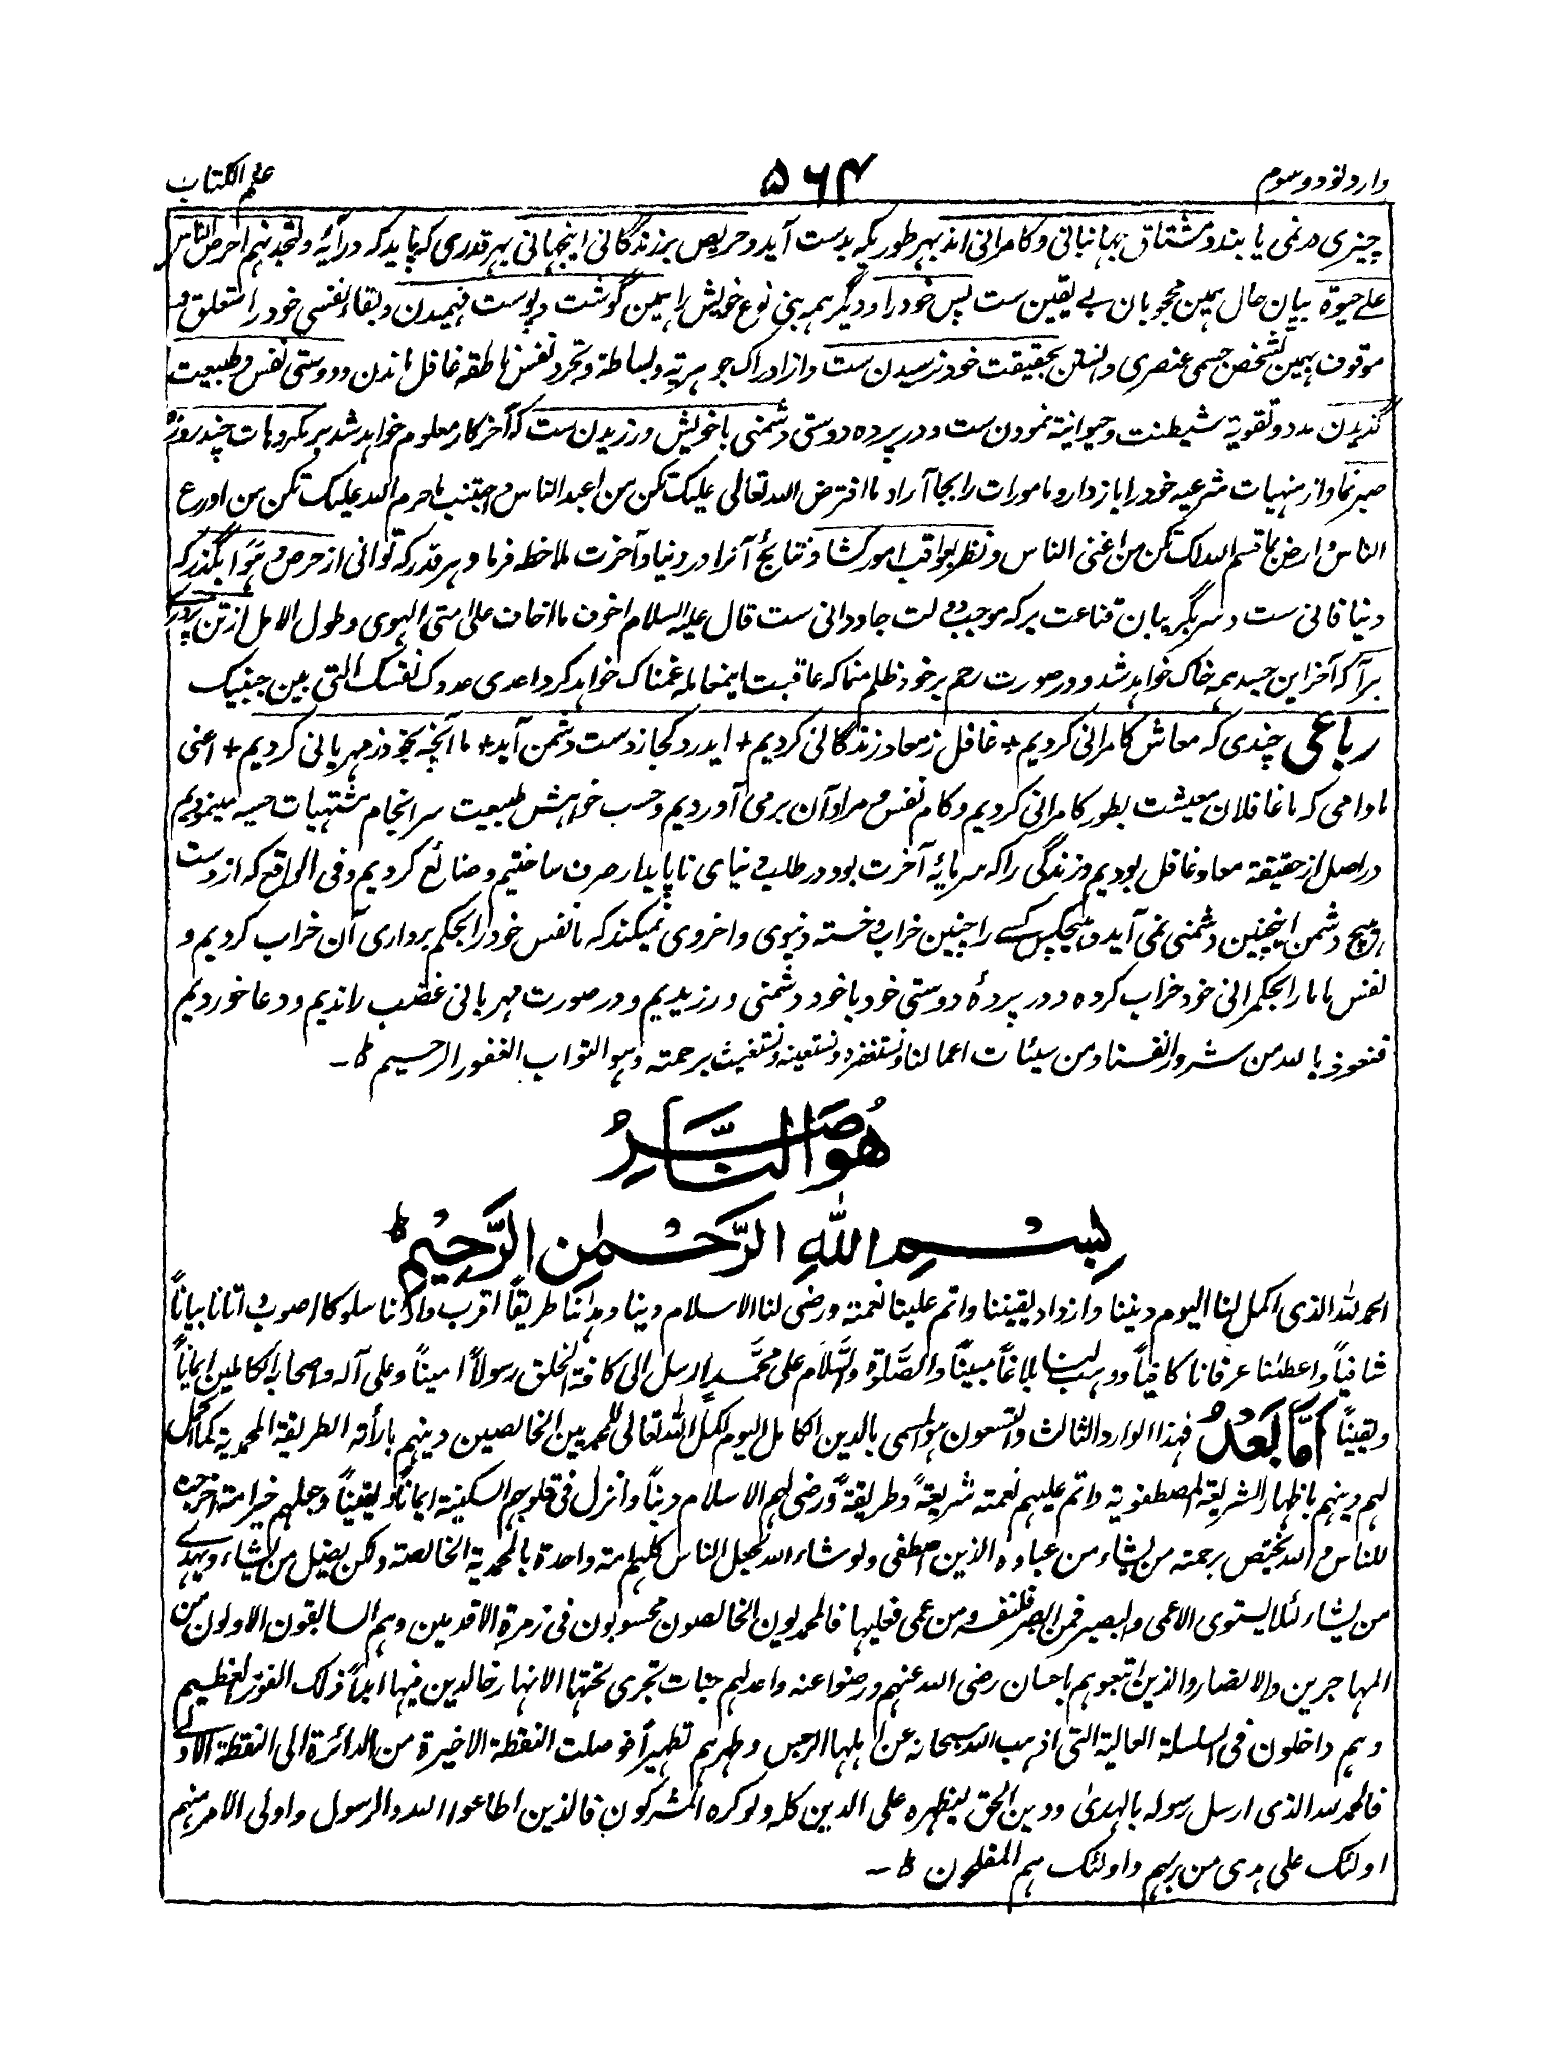 وارد نود و سوم
۵۶۴
علم الکتاب
چیزی در نمی یابند و مشتاق بہانبانی و کامرانی اند بہر طور یکہ بدست آید و حریص بر زندگانی اینجہانی بہر قدری کہ پاید کہ در آیۂ ولتجدنہم احرص الناس
علے حیوۃ بیان حال ہمین محجوبان بے یقین ست پس خود را و دیگر ہمہ بنی نوع خویش را ہمین گوشت و پوست فہمیدن و بقاء نفسی خود را متعلق و
موقوف بہمین تشخص جسمی عنصری دانستن بحقیقت خود نرسیدن ست و از ادراک جوہریۃ و بساطۃ و تجرد نفس ناطقہ غافل ماندن و دوستی نفس و طبیعت
گزیدن مدد و تقویۃ شیطنت و حیوانیۃ نمودن ست و در پردہ دوستی دشمنی با خویش ورزیدن ست کہ آخر کار معلوم خواہد شد بر مکروہات چند روزہ
صبر نما و از منہیات شرعیہ خود را باز دار و مامورات را بجا آر اد ما افترض اللہ تعالی علیک تکن من اعبد الناس و اجتنب ما حرم اللہ علیک تکن من اورع
الناس و ارض بما قسم اللہ لک تکن من اغنی الناس و نظر بعواقب امور کشا و نتایج آنرا در دنیا و آخرت ملاحظہ فرما و ہر قدر کہ توانی از حرص و ہوا بگذر کہ
دنیا فانی ست و سر بگریبان قناعت بر کہ موجب دولت جاودانی ست قال علیہ السلام اخوف ما اخاف علی امتی الہوی و طول الامل از تن پروری
برآ کہ آخر این جسد ہمہ خاک خواہد شد و در صورت رحم بر خود ظلم منما کہ عاقبت اینمعاملہ غمناک خواہد کرد اعدی عدوک نفسک التی بین جنبیک
رباعی چندی کہ معاش کامرانی کردیم + غافل ز معاد زندگانی کردیم + ای درد کجا ز دست دشمن آید + ما آنچہ بخود ز مہربانی کردیم + اعنی
مادامی کہ ما غافلان معیشت بطور کامرانی کردیم و کام نفس و مراد آن بر می آوردیم و حسب خواہش طبیعت سرانجام مشتہیات حسیہ مینمودیم
در اصل از حقیقۃ معاد غافل بودیم و زندگی را کہ سرمایۂ آخرت بود در طلب دنیای ناپایدار صرف ساختیم و ضائع کردیم و فی الواقع کہ از دست
ہیچ دشمن اینچنین دشمنی نمی آید و ہیچکس کسے را چنین خراب و خستہ دنیوی و اخروی نمیکند کہ ما نفس خود را بحکم برداری آن خراب کردیم و
نفس ما ما را بحکمرانی خود خراب کردہ و در پردۂ دوستی خود با خود دشمنی ورزیدیم و در صورت مہربانی غضب راندیم و دغا خوردیم
فنعوذ باللہ من شرور انفسنا و من سیئات اعمالنا و نستغفرہ و نستعینہ و نستغیث برحمتہ و ہو التواب الغفور الرحیم ط۔
هُوَ النَّاصِرُ
بِسْمِ اللّٰهِ الرَّحْمٰنِ الرَّحِيْمِ ط
الحمد للہ الذی اکمل لنا الیوم دیننا و ازداد یقیننا و اتم علینا نعمتہ و رضی لنا الاسلام دینا و ہدانا طریقاً اقرب و ارانا سلوکا اصوب و اتانا بیاناً
شافیاً و اعطانا عرفانا کافیاً و وہب لنا بلاغاً مبیناً والصَّلوۃ والسَّلام علی محمَّد ارسل الی کافۃ الخلق رسولاً امیناً و علی آلہ و اصحابہ الکاملین ایماناً
و یقیناً اَمَّا بَعْدُ فہذا الوارد الثالث والتسعون ہو المسمی بالدین الکامل الیوم اکمل اللہ تعالی للمحمدیین الخالصین دینہم بارأۃ الطریقۃ المحمدیۃ کما اکمل
لہم دینہم باظہار الشریعۃ المصطفویۃ و اتم علیہم نعمتہ شریعۃً و طریقۃً و رضی لہم الاسلام دیناً و انزل فی قلوبہم السکینۃ ایماناً و یقیناً و جعلہم خیر امۃ اخرجت
للناس و اللہ یختص برحمتہ من یشاء من عبادہ الذین اصطفی و لو شاء اللہ لجعل الناس کلہم امۃ واحدۃ بالمحمدیۃ الخالصۃ و لکن یضل من یشاء و یہدی
من یشاء لئلا یستوی الاعمی والبصیر فمن ابصر فلنفسہ و من عمی فعلیہا فالمحمدیون الخالصون محسوبون فی زمرۃ الاقدمین و ہم السابقون الاولون من
المہاجرین والانصار والذین اتبعوہم باحسان رضی اللہ عنہم و رضوا عنہ و اعد لہم جنات تجری تحتہا الانہار خالدین فیہا ابداً ذلک الفوز العظیم
و ہم داخلون فی السلسلۃ العالیۃ التی اذہب اللہ سبحانہ عن اہلہا الرجس و طہرہم تطہیراً فوصلت النقطۃ الاخیرۃ من الدائرۃ الی النقطۃ الاولی
فالحمد للہ الذی ارسل رسولہ بالہدی و دین الحق لیظہرہ علی الدین کلہ و لو کرہ المشرکون فالذین اطاعوا اللہ والرسول و اولی الامر منہم
اولئک علی ہدی من ربہم و اولئک ہم المفلحون ط۔